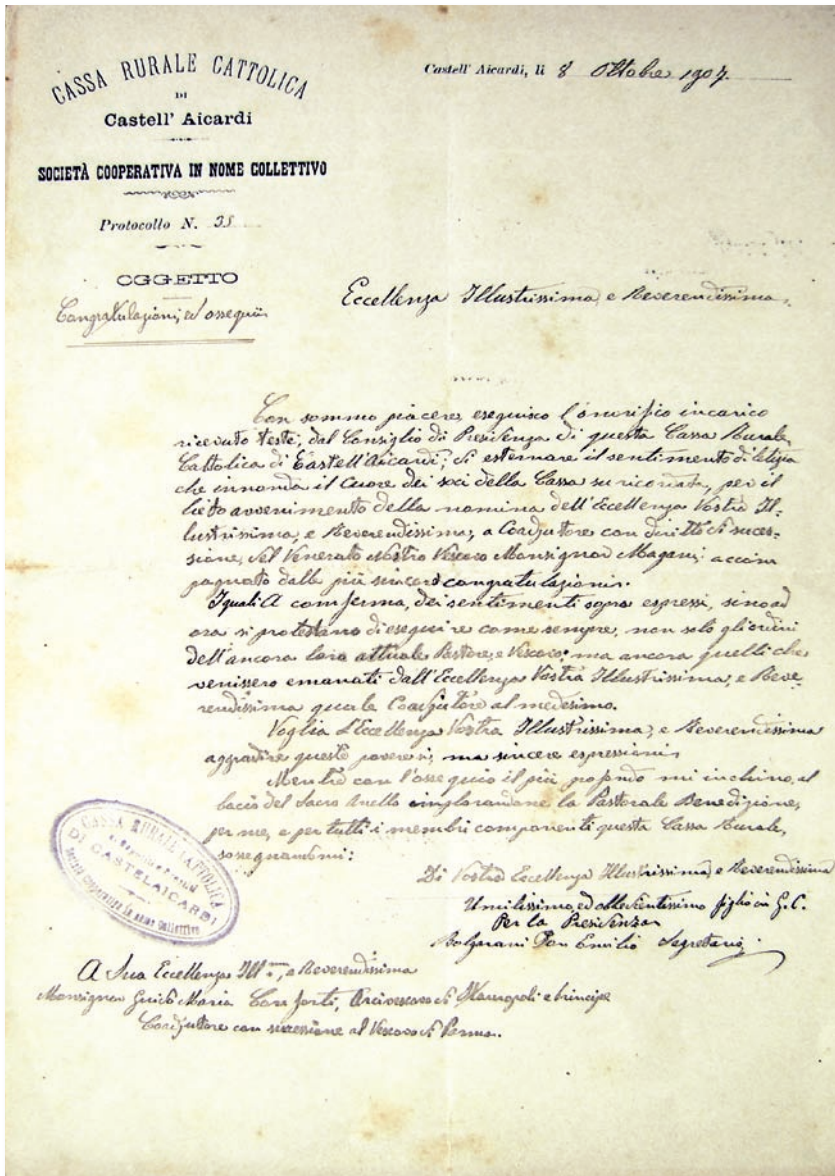 CASSA RURALE CATTOLICA
DI
Castell' Aicardi
SOCIETÀ COOPERATIVA IN NOME COLLETTIVO
Protocollo N. 38
OGGETTO
Congratulazioni, ed ossequii
Castell' Aicardi, li 8 Ottobre 1907.
Eccellenza Illustrissima, e Reverendissima,
Con sommo piacere, eseguisco l'onorifico incarico
ricevuto testè, dal Consiglio di Presidenza di questa Cassa Rurale,
Cattolica di Castell'Aicardi, di esternare il sentimento di letizia
che innonda il Cuore dei soci della Cassa su ricordata, per il
lieto avvenimento della nomina dell'Eccellenza Vostra Il-
lustrissima, e Reverendissima, a Coadjutore con diritto di succes-
sione, del Venerato Nostro Vescovo Monsignor Magani; accom
pagnato dalle più sincere congratulazioni.
I quali A conferma, dei sentimenti sopra espressi, sino ad
ora si protestano di eseguire come sempre, non solo gli ordini
dell'ancora loro attuale Pastore, e Vescovo; ma ancora quelli che
venissero emanati dall'Eccellenza Vostra Illustrissima, e Reve-
rendissima quale Coadjutore al medesimo.
Voglia L'Eccellenza Vostra Illustrissima, e Reverendissima
aggradire queste povere, ma sincere espressioni
Mentre con l'ossequio il più profondo mi inchino, al
bacio del Sacro Anello implorandone la Pastorale Benedizione,
per me, e per tutti i membri componenti questa Cassa Rurale,
sossegnandomi:
Di Vostra Eccellenza Illustrissima, e Reverendissima
Umilissimo, ed obbedientissimo figlio in G. C.
Per la Presidenza
Don Emilio Segretario
CASSA RURALE CATTOLICA
DI CASTELAICARDI
Società Cooperativa in nome Collettivo
A Sua Eccellenza Ill.ma, e Reverendissima
Monsignor Guido Maria Conforti, Arcivescovo di Stauropoli e Principe
Coadjutore con successione al Vescovo di Parma.